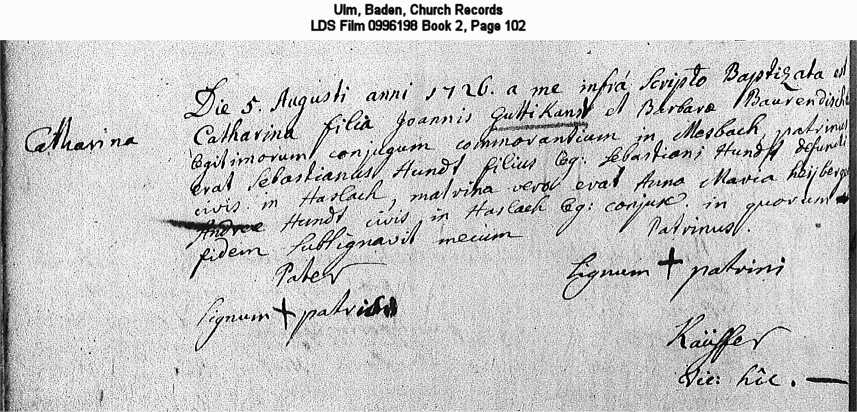 Ulm, Baden, Church Records
LDS Film 0996198 Book 2, Page 102
Catharina
Die 5. Augusti anni 1726. a me infrà scripto Baptizata est
Catharina filia Joannis Guttikanst et Barbaræ
legitimorum conjugum commorantium in Mosbach, patrinus
erat Sebastianus Hundt filius leg: Sebastiani Hundt defuncti
civis in Haslach, matrina vero erat Anna Maria
Andreæ Hundt civis in Haslach leg: conjux. in quorum
fidem subsignavit mecum Patrinus.
Pater
Signum + patrini
Signum + patris
Käüffer
Vic: hîc.